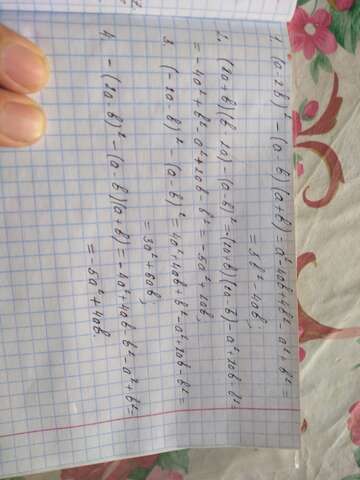 1. (a-2b)² - (a-b)(a+b) = a² - 4ab + 4b² - a² + b² =
= 5b² - 4ab;
2. (2a+b)(b-2a) - (a-b)² = -(2a+b)(2a-b) - a² + 2ab - b² =
= -4a² + b² - a² + 2ab - b² = -5a² + 2ab;
3. (-2a-b)² - (a-b)² = 4a² + 4ab + b² - a² + 2ab - b² =
= 3a² + 6ab;
4. -(2a-b)² - (a-b)(a+b) = -4a² + 4ab - b² - a² + b² =
= -5a² + 4ab.